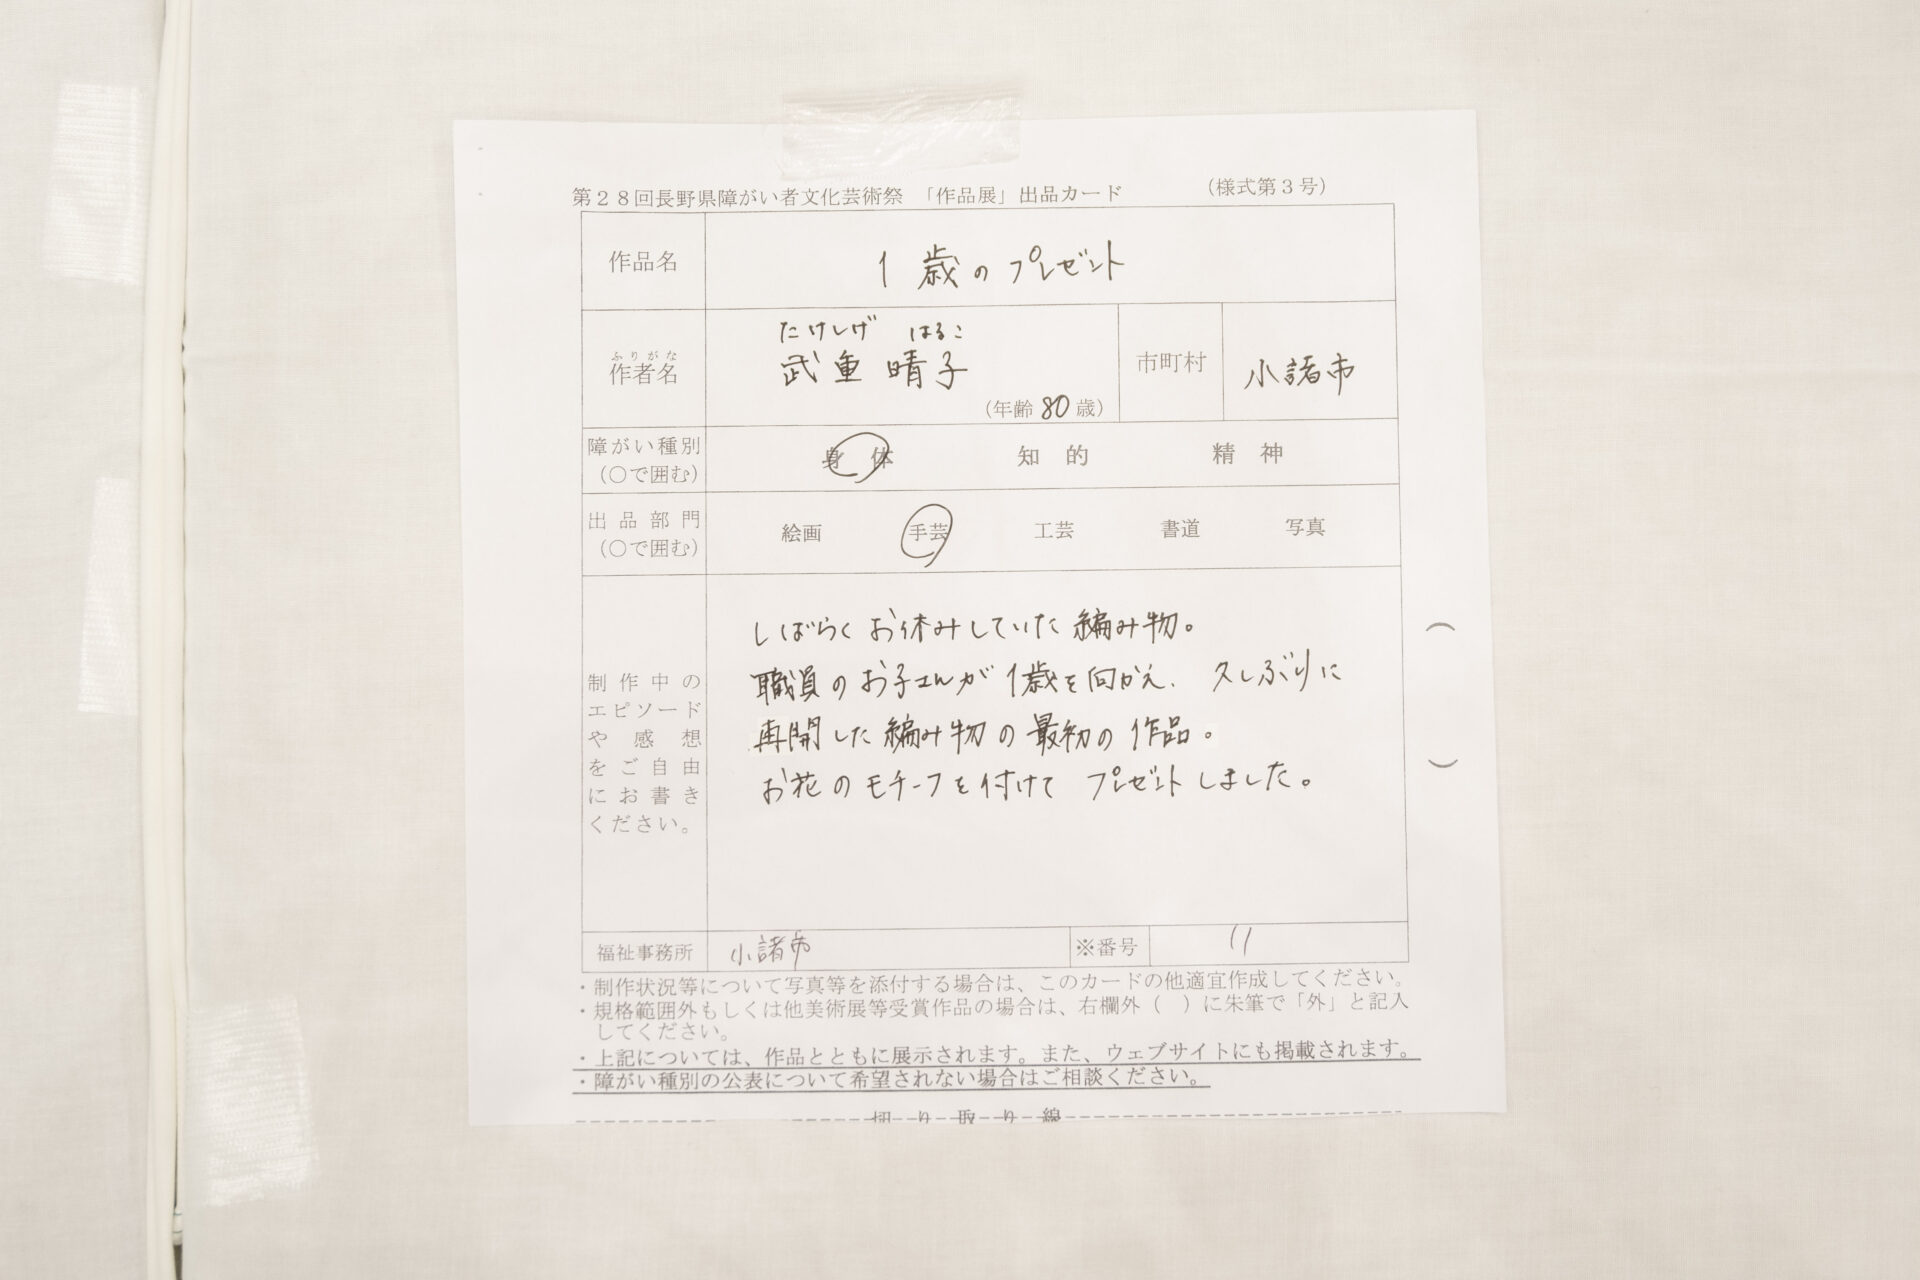 第28回長野県障がい者文化芸術祭 「作品展」出品カード (様式第3号)
作品名 1歳のプレゼント
ふりがな たけしげ はるこ
作者名 武重 晴子 (年齢 80 歳) 市町村 小諸市
障がい種別 (○で囲む) 身体 知的 精神
出品部門 (○で囲む) 絵画 手芸 工芸 書道 写真
制作中の
エピソード
や感想
をご自由
にお書き
ください。
しばらくお休みしていた編み物。
職員のお子さんが1歳を向かえ、久しぶりに
再開した編み物の最初の作品。
お花のモチーフを付けてプレゼントしました。
( )
福祉事務所 小諸市 ※番号 11
・制作状況等について写真等を添付する場合は、このカードの他適宜作成してください。
・規格範囲外もしくは他美術展等受賞作品の場合は、右欄外( )に朱筆で「外」と記入
してください。
・上記については、作品とともに展示されます。また、ウェブサイトにも掲載されます。
・障がい種別の公表について希望されない場合はご相談ください。
切り取り線